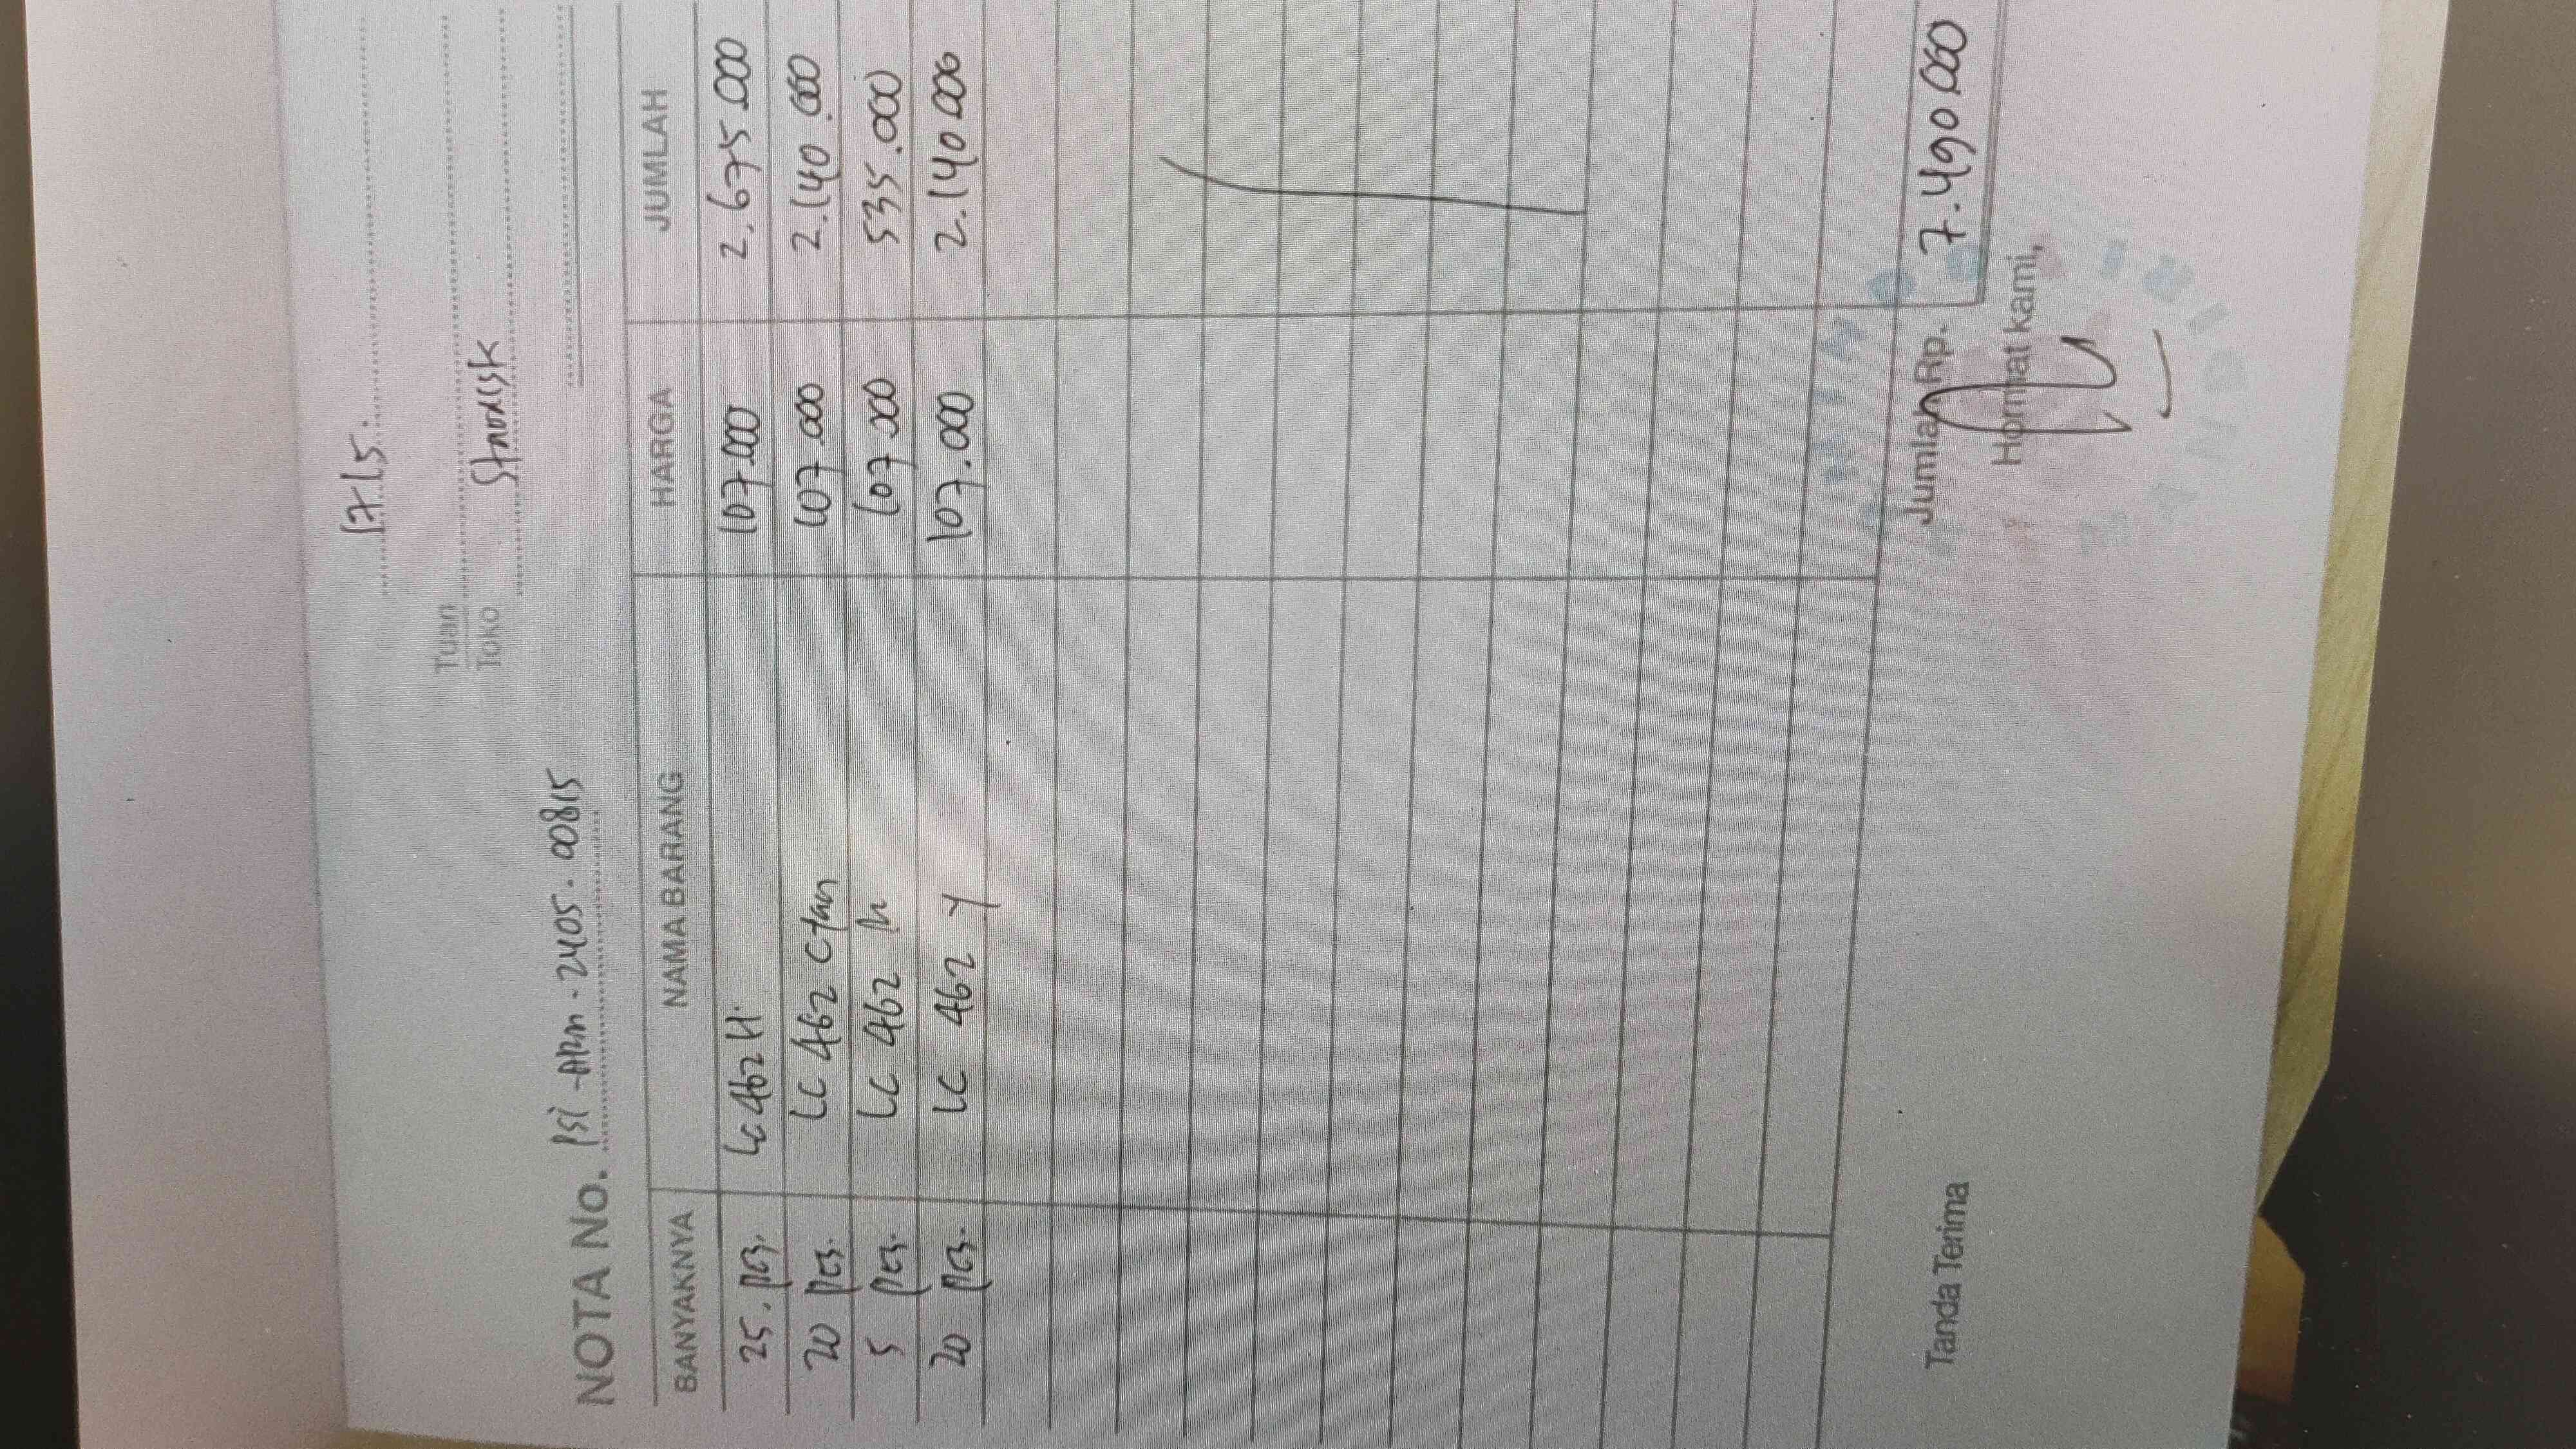 17/5.
Tuan
Toko
NOTA No. psi - - 2405 - 00815
BANYAKNYA NAMA BARANG HARGA JUMLAH
25. pcs. Lc 462 H. 107.000 2.675.000
20 pcs. LC 462 Ctan 107.000 2.140.000
5 pcs. LC 462 107.000 535.000
20 pcs. LC 462 Y 107.000 2.140.000
Jumlah Rp. 7.490.000
Tanda Terima Hormat kami,